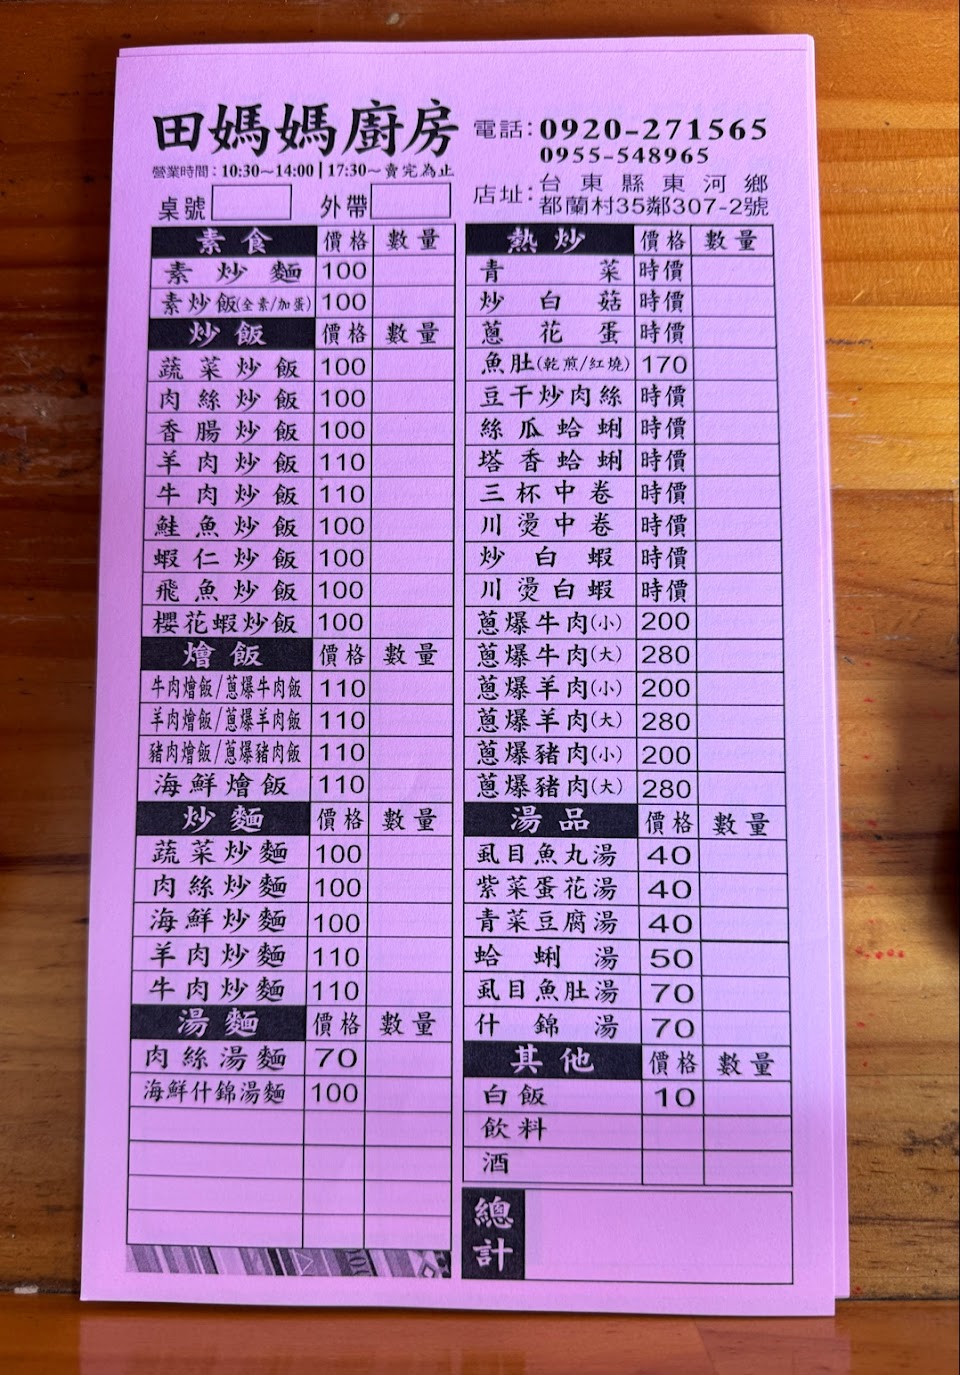 田媽媽廚房
電話：0920-271565
0955-548965
營業時間：10:30～14:00 | 17:30～賣完為止
店址：台東縣東河鄉
都蘭村35鄰307-2號
桌號 外帶
素食 價格 數量
素炒麵 100
素炒飯(全素/加蛋) 100
炒飯 價格 數量
蔬菜炒飯 100
肉絲炒飯 100
香腸炒飯 100
羊肉炒飯 110
牛肉炒飯 110
鮭魚炒飯 100
蝦仁炒飯 100
飛魚炒飯 100
櫻花蝦炒飯 100
燴飯 價格 數量
牛肉燴飯/蔥爆牛肉飯 110
羊肉燴飯/蔥爆羊肉飯 110
豬肉燴飯/蔥爆豬肉飯 110
海鮮燴飯 110
炒麵 價格 數量
蔬菜炒麵 100
肉絲炒麵 100
海鮮炒麵 100
羊肉炒麵 110
牛肉炒麵 110
湯麵 價格 數量
肉絲湯麵 70
海鮮什錦湯麵 100
熱炒 價格 數量
青菜 時價
炒白菇 時價
蔥花蛋 時價
魚肚(乾煎/紅燒) 170
豆干炒肉絲 時價
絲瓜蛤蜊 時價
塔香蛤蜊 時價
三杯中卷 時價
川燙中卷 時價
炒白蝦 時價
川燙白蝦 時價
蔥爆牛肉(小) 200
蔥爆牛肉(大) 280
蔥爆羊肉(小) 200
蔥爆羊肉(大) 280
蔥爆豬肉(小) 200
蔥爆豬肉(大) 280
湯品 價格 數量
虱目魚丸湯 40
紫菜蛋花湯 40
青菜豆腐湯 40
蛤蜊湯 50
虱目魚肚湯 70
什錦湯 70
其他 價格 數量
白飯 10
飲料
酒
總計